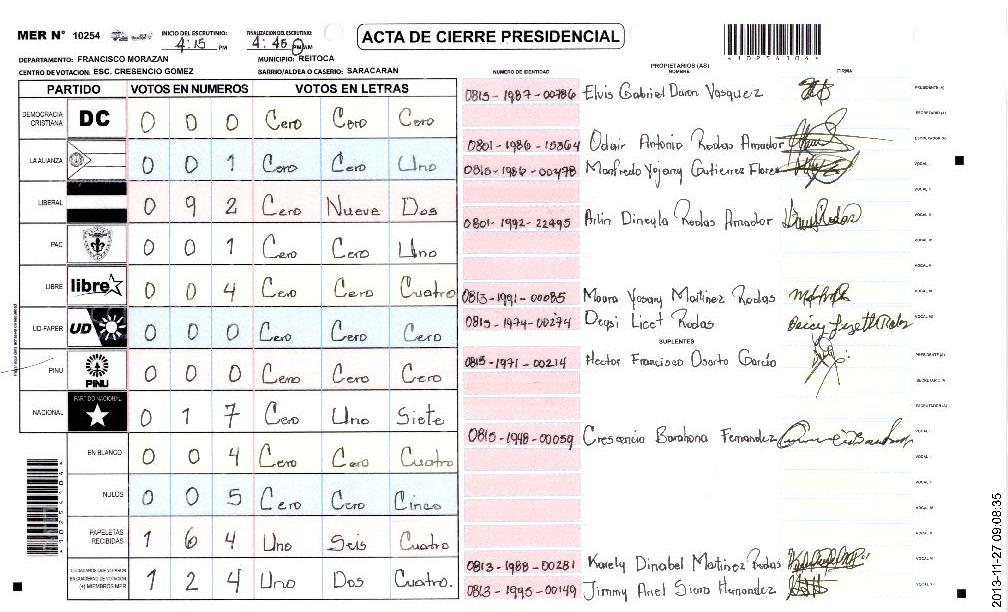 MER N° 10254 INICIO DEL ESCRUTINIO: 4:15 PM FINALIZACION DEL ESCRUTINIO: 4:46 PM/AM ACTA DE CIERRE PRESIDENCIAL
DEPARTAMENTO: FRANCISCO MORAZAN MUNICIPIO: REITOCA
CENTRO DE VOTACION: ESC. CRESENCIO GOMEZ BARRIO/ALDEA O CASERIO: SARACARAN
PARTIDO VOTOS EN NUMEROS VOTOS EN LETRAS
DEMOCRACIA CRISTIANA DC 0 0 0 Cero Cero Cero
LA ALIANZA 0 0 1 Cero Cero Uno
LIBERAL 0 9 2 Cero Nueve Dos
PAC 0 0 1 Cero Cero Uno
LIBRE libre 0 0 4 Cero Cero Cuatro
UD-FAPER UD 0 0 0 Cero Cero Cero
PINU PINU 0 0 0 Cero Cero Cero
NACIONAL PARTIDO NACIONAL 0 1 7 Cero Uno Siete
EN BLANCO 0 0 4 Cero Cero Cuatro
NULOS 0 0 5 Cero Cero Cinco
PAPELETAS RECIBIDAS 1 6 4 Uno Seis Cuatro
CIUDADANOS QUE VOTARON EN CUADERNO DE VOTACION (+) MIEMBROS MER 1 2 4 Uno Dos Cuatro.
NUMERO DE IDENTIDAD PROPIETARIOS (AS) NOMBRE FIRMA
0815-1987-00786 Elvis Gabriel Duron Vasquez PRESIDENTE (A)
SECRETARIO (A)
0801-1986-15364 Odair Antonio Rodas Amador ESCRUTADOR (A)
0815-1986-00478 Manfredo Yojany Gutierrez Flores VOCAL I
VOCAL II
0801-1992-22495 Arlin Dineyla Rodas Amador VOCAL III
VOCAL IV
VOCAL V
0813-1991-00085 Maura Yosary Martinez Rodas VOCAL VI
0815-1974-00274 Deysi Licet Rodas VOCAL VII
SUPLENTES
0815-1971-00214 Hector Francisco Osorto Garcia PRESIDENTE (A)
SECRETARIO (A)
ESCRUTADOR (A)
0815-1948-00059 Crescencio Barahona Fernandez VOCAL I
0813-1988-00281 Karely Dinabel Martinez Rodas
0813-1995-00149 Jimmy Ariel Sierra Hernandez
2013-11-27 09:08:35